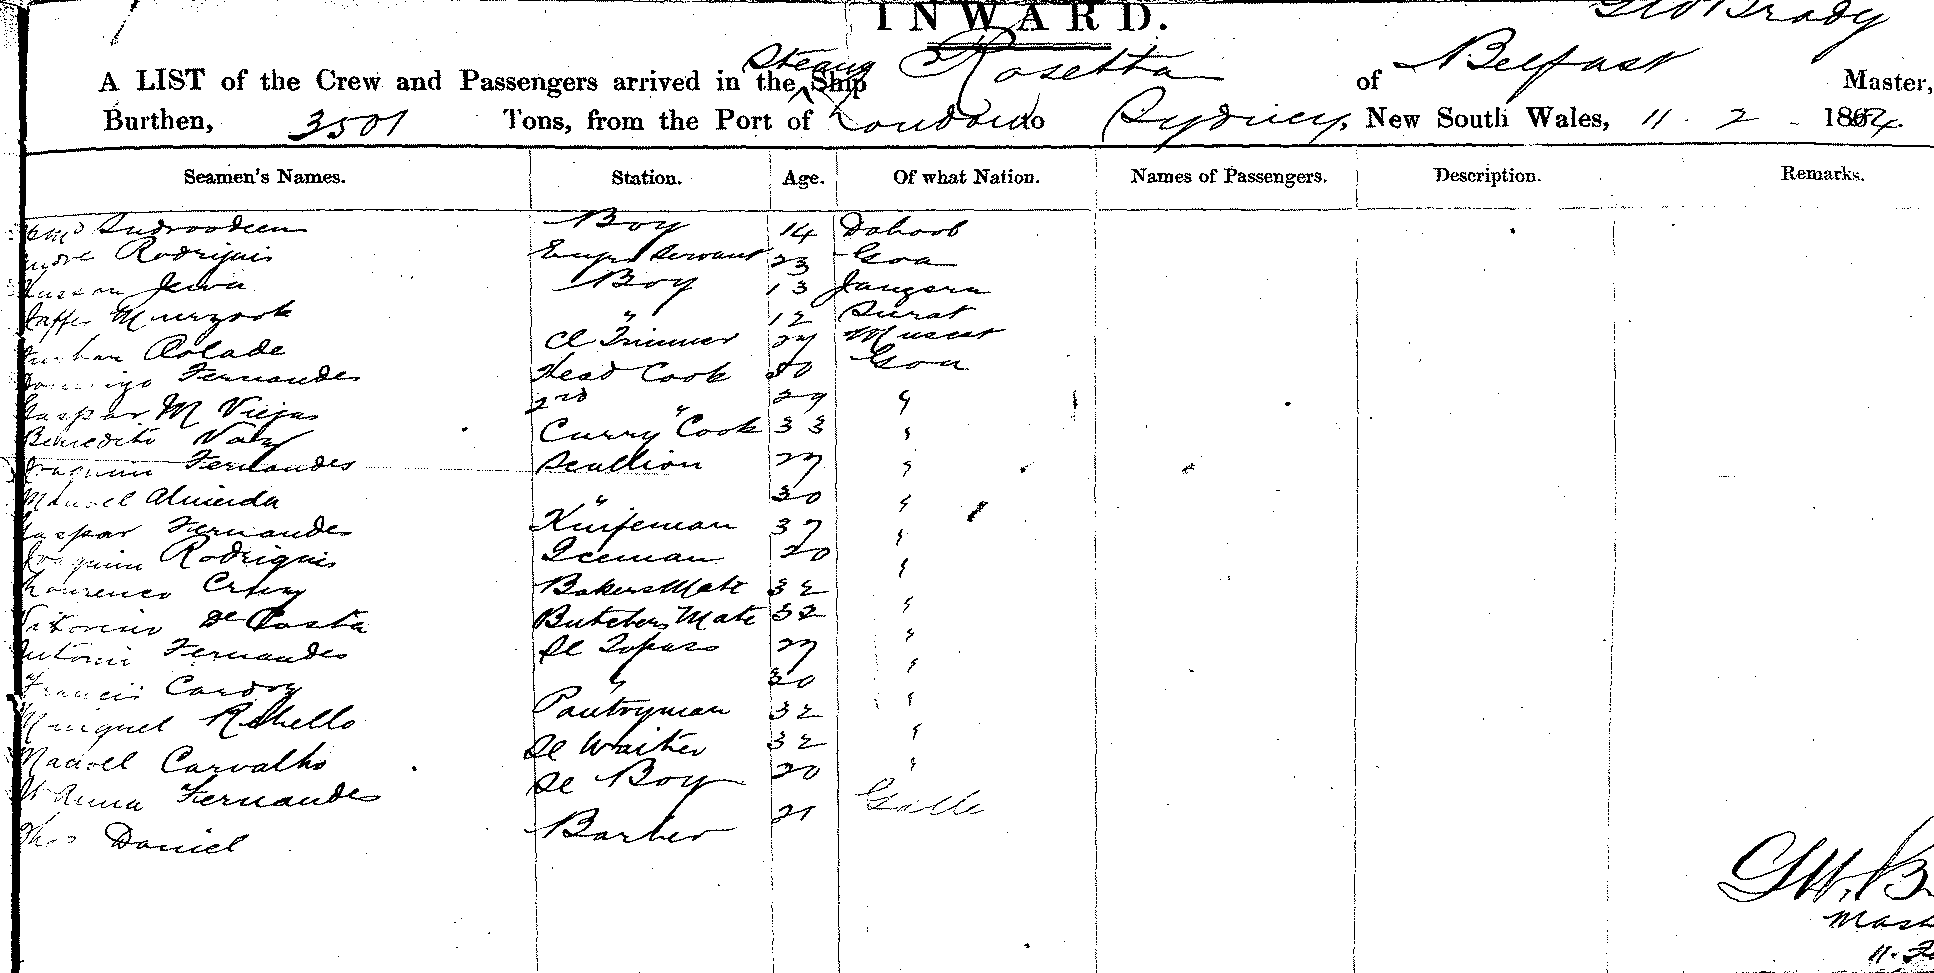 INWARD.
Geo Brady
A LIST of the Crew and Passengers arrived in the Steam Ship Rosetta of Belfast Master,
Burthen, 3501 Tons, from the Port of London to Sydney, New South Wales, 11 . 2 - 1884.
Seamen's Names. Station. Age. Of what Nation. Names of Passengers. Description. Remarks.
Boy 14
Rodriguis Servant 23 Goa
Jewa Boy 13
Jaffer Murzook " 12 Surat
Cl Trimmer 27 Muscat
Domingo Fernandes Head Cook 50 Goa
Gaspar M Viejas 2nd " 29 "
Benedito Vaz Curry Cook 33 "
Joaquim Fernandes Scullion 27 "
Manoel Almeida " 30 "
Gaspar Fernandes Knifeman 37 "
Joaquim Rodriguis Iceman 20 "
Lourenco Cruz Bakers Mate 32 "
Vitorino de Costa Butchers Mate 32 "
Antonio Fernandes Sl Topass 27 "
Francis Cardoz " 30 "
Minguel Rebello Pantryman 32 "
Manoel Carvalho Sl Waiter 32 "
Anna Fernandes Sl Boy 20 "
Thos Daniel Barber 21 Galle
G W. B
Mast
11. Fe